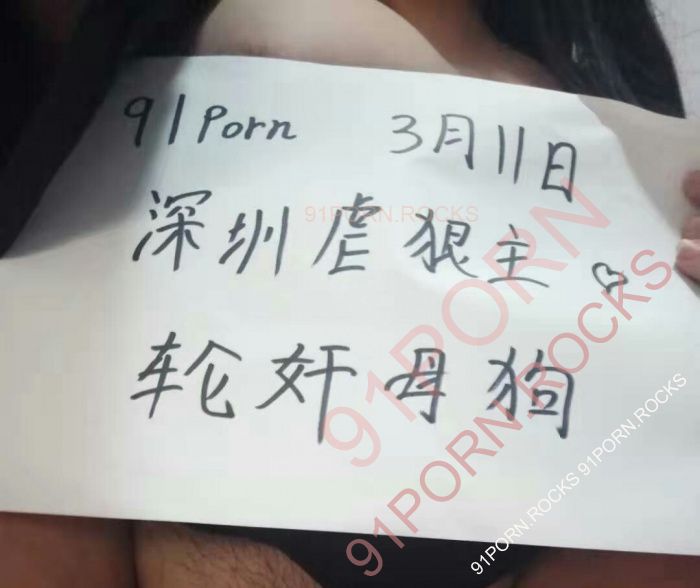 91Porn 3月11日
深圳虐狠主♡
轮奸母狗
91PORN.ROCKS
91PORN
91PORN.ROCKS
91PORN.ROCKS 91PORN.ROCKS